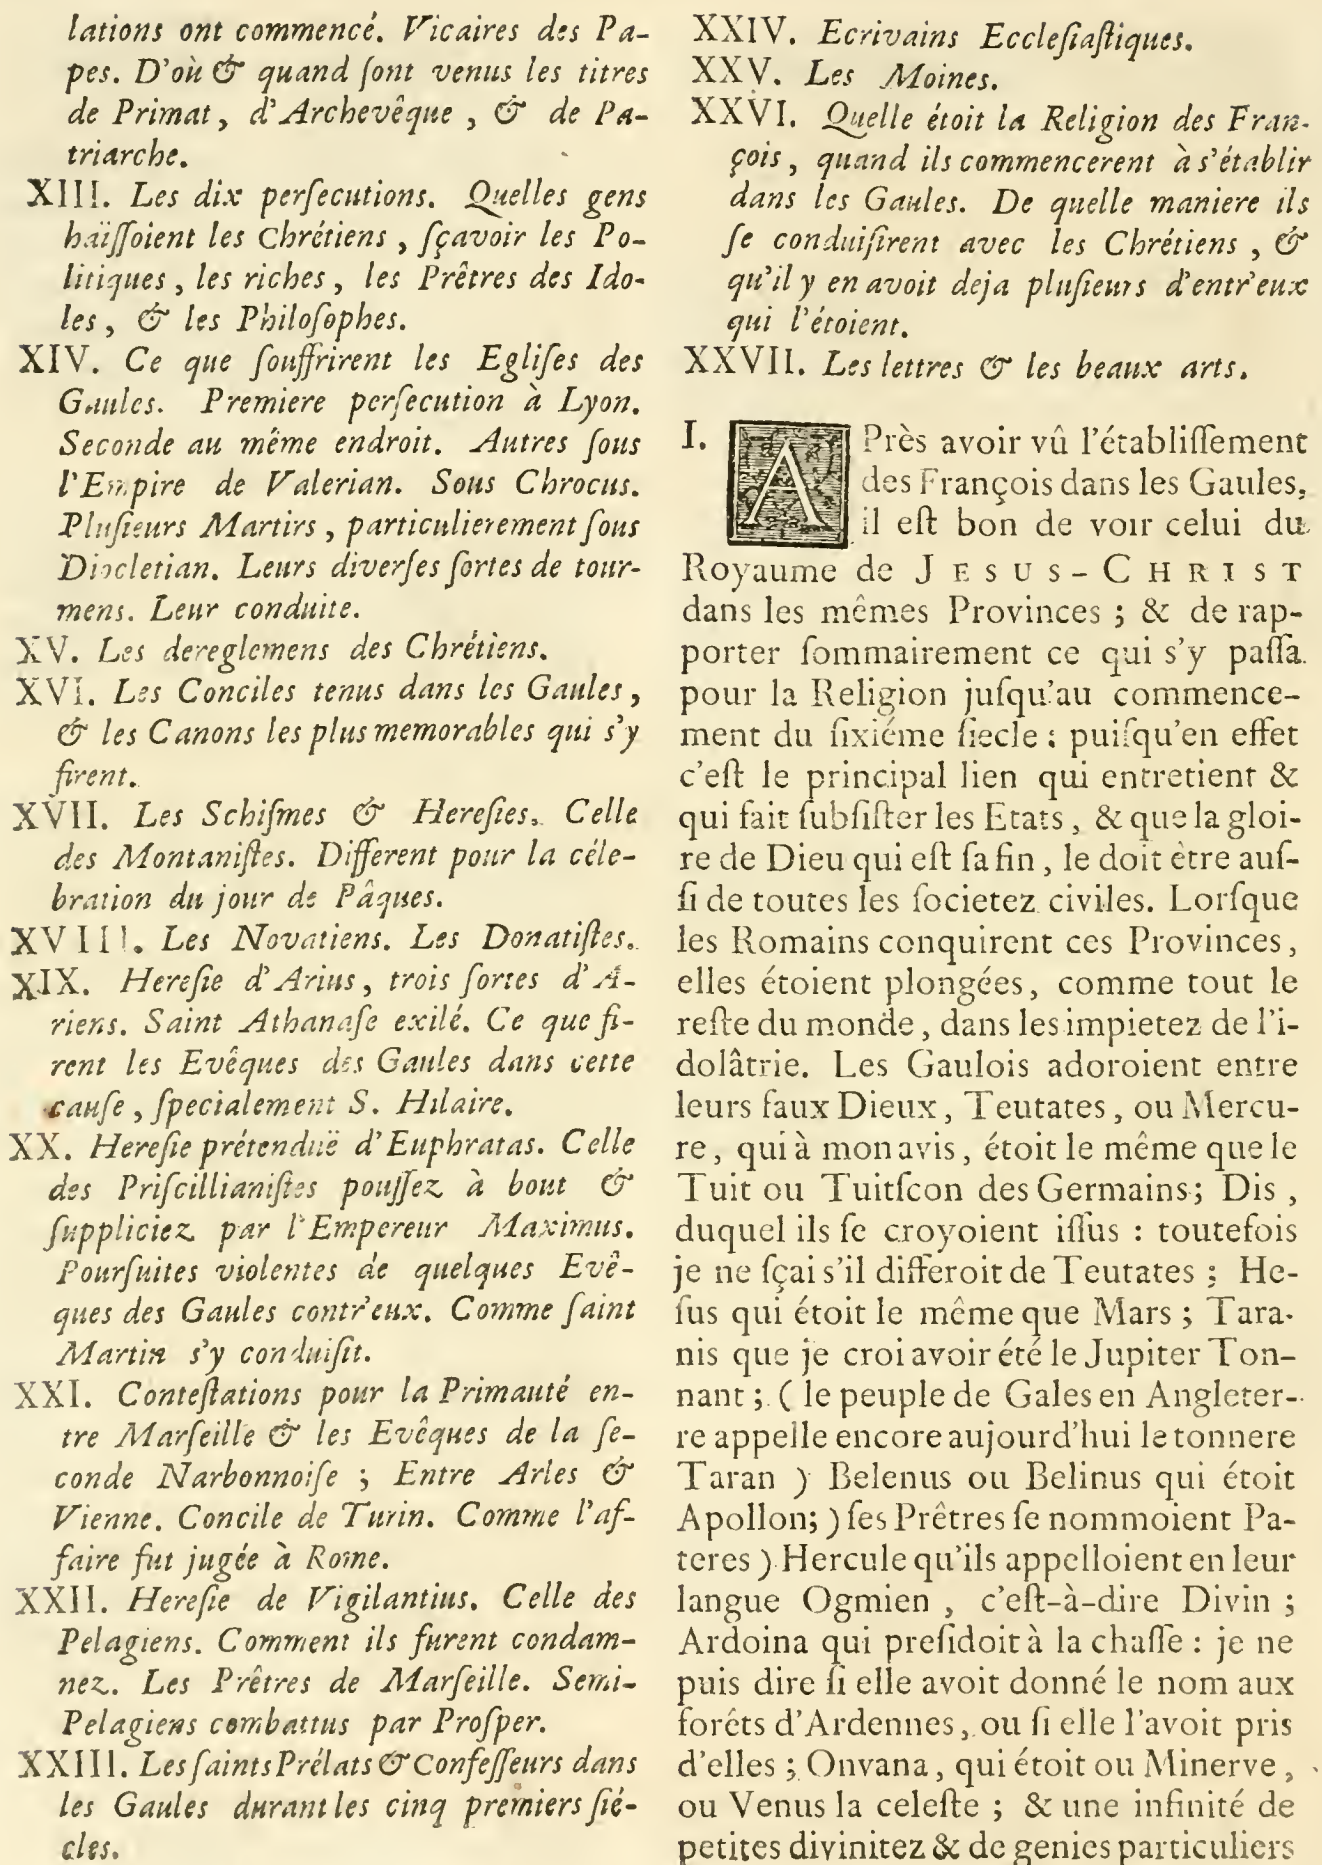 lations ont commencé. Vicaires des Pa-
pes. D'où & quand ſont venus les titres
de Primat, d'Archevêque, & de Pa-
triarche.
XIII. Les dix perſecutions. Quelles gens
haïſſoient les Chrétiens, ſçavoir les Po-
litiques, les riches, les Prêtres des Ido-
les, & les Philoſophes.
XIV. Ce que ſouffrirent les Egliſes des
Gaules. Premiere perſecution à Lyon.
Seconde au même endroit. Autres ſous
l'Empire de Valerian. Sous Chrocus.
Pluſieurs Martirs, particulierement ſous
Diocletian. Leurs diverſes ſortes de tour-
mens. Leur conduite.
XV. Les dereglemens des Chrétiens.
XVI. Les Conciles tenus dans les Gaules,
& les Canons les plus memorables qui s'y
firent.
XVII. Les Schiſmes & Hereſies. Celle
des Montaniſtes. Different pour la céle-
bration du jour de Pâques.
XVIII. Les Novatiens. Les Donatiſtes.
XIX. Hereſie d'Arius, trois ſortes d'A-
riens. Saint Athanaſe exilé. Ce que fi-
rent les Evêques des Gaules dans cette
cauſe, ſpecialement S. Hilaire.
XX. Hereſie prétenduë d'Euphratas. Celle
des Priſcillianiſtes pouſſez à bout &
ſuppliciez par l'Empereur Maximus.
Pourſuites violentes de quelques Evê-
ques des Gaules contr'eux. Comme ſaint
Martin s'y conduiſit.
XXI. Conteſtations pour la Primauté en-
tre Marſeille & les Evêques de la ſe-
conde Narbonnoiſe ; Entre Arles &
Vienne. Concile de Turin. Comme l'af-
faire fut jugée à Rome.
XXII. Hereſie de Vigilantius. Celle des
Pelagiens. Comment ils furent condam-
nez. Les Prêtres de Marſeille. Semi-
Pelagiens combattus par Proſper.
XXIII. Les ſaints Prélats & Confeſſeurs dans
les Gaules durant les cinq premiers ſié-
cles.
XXIV. Ecrivains Eccleſiaſtiques.
XXV. Les Moines.
XXVI. Quelle étoit la Religion des Fran-
çois, quand ils commencerent à s'établir
dans les Gaules. De quelle maniere ils
ſe conduiſirent avec les Chrétiens, &
qu'il y en avoit deja pluſieurs d'entr'eux
qui l'étoient.
XXVII. Les lettres & les beaux arts.
I. APrès avoir vû l'établiſſement
des François dans les Gaules,
il eſt bon de voir celui du
Royaume de JESUS-CHRIST
dans les mêmes Provinces ; & de rap-
porter ſommairement ce qui s'y paſſa
pour la Religion juſqu'au commence-
ment du ſixiéme ſiecle : puiſqu'en effet
c'eſt le principal lien qui entretient &
qui fait ſubſiſter les Etats, & que la gloi-
re de Dieu qui eſt ſa fin, le doit être auſ-
ſi de toutes les ſocietez civiles. Lorſque
les Romains conquirent ces Provinces,
elles étoient plongées, comme tout le
reſte du monde, dans les impietez de l'i-
dolâtrie. Les Gaulois adoroient entre
leurs faux Dieux, Teutates, ou Mercu-
re, qui à mon avis, étoit le même que le
Tuit ou Tuitſcon des Germains; Dis,
duquel ils ſe croyoient iſſus : toutefois
je ne ſçai s'il differoit de Teutates ; He-
ſus qui étoit le même que Mars ; Tara-
nis que je croi avoir été le Jupiter Ton-
nant ; ( le peuple de Gales en Angleter-
re appelle encore aujourd'hui le tonnere
Taran ) Belenus ou Belinus qui étoit
Apollon; ) ſes Prêtres ſe nommoient Pa-
teres ) Hercule qu'ils appelloient en leur
langue Ogmien, c'eſt-à-dire Divin ;
Ardoina qui preſidoit à la chaſſe : je ne
puis dire ſi elle avoit donné le nom aux
forêts d'Ardennes, ou ſi elle l'avoit pris
d'elles ; Onvana, qui étoit ou Minerve,
ou Venus la celeſte ; & une infinité de
petites divinitez & de genies particuliers